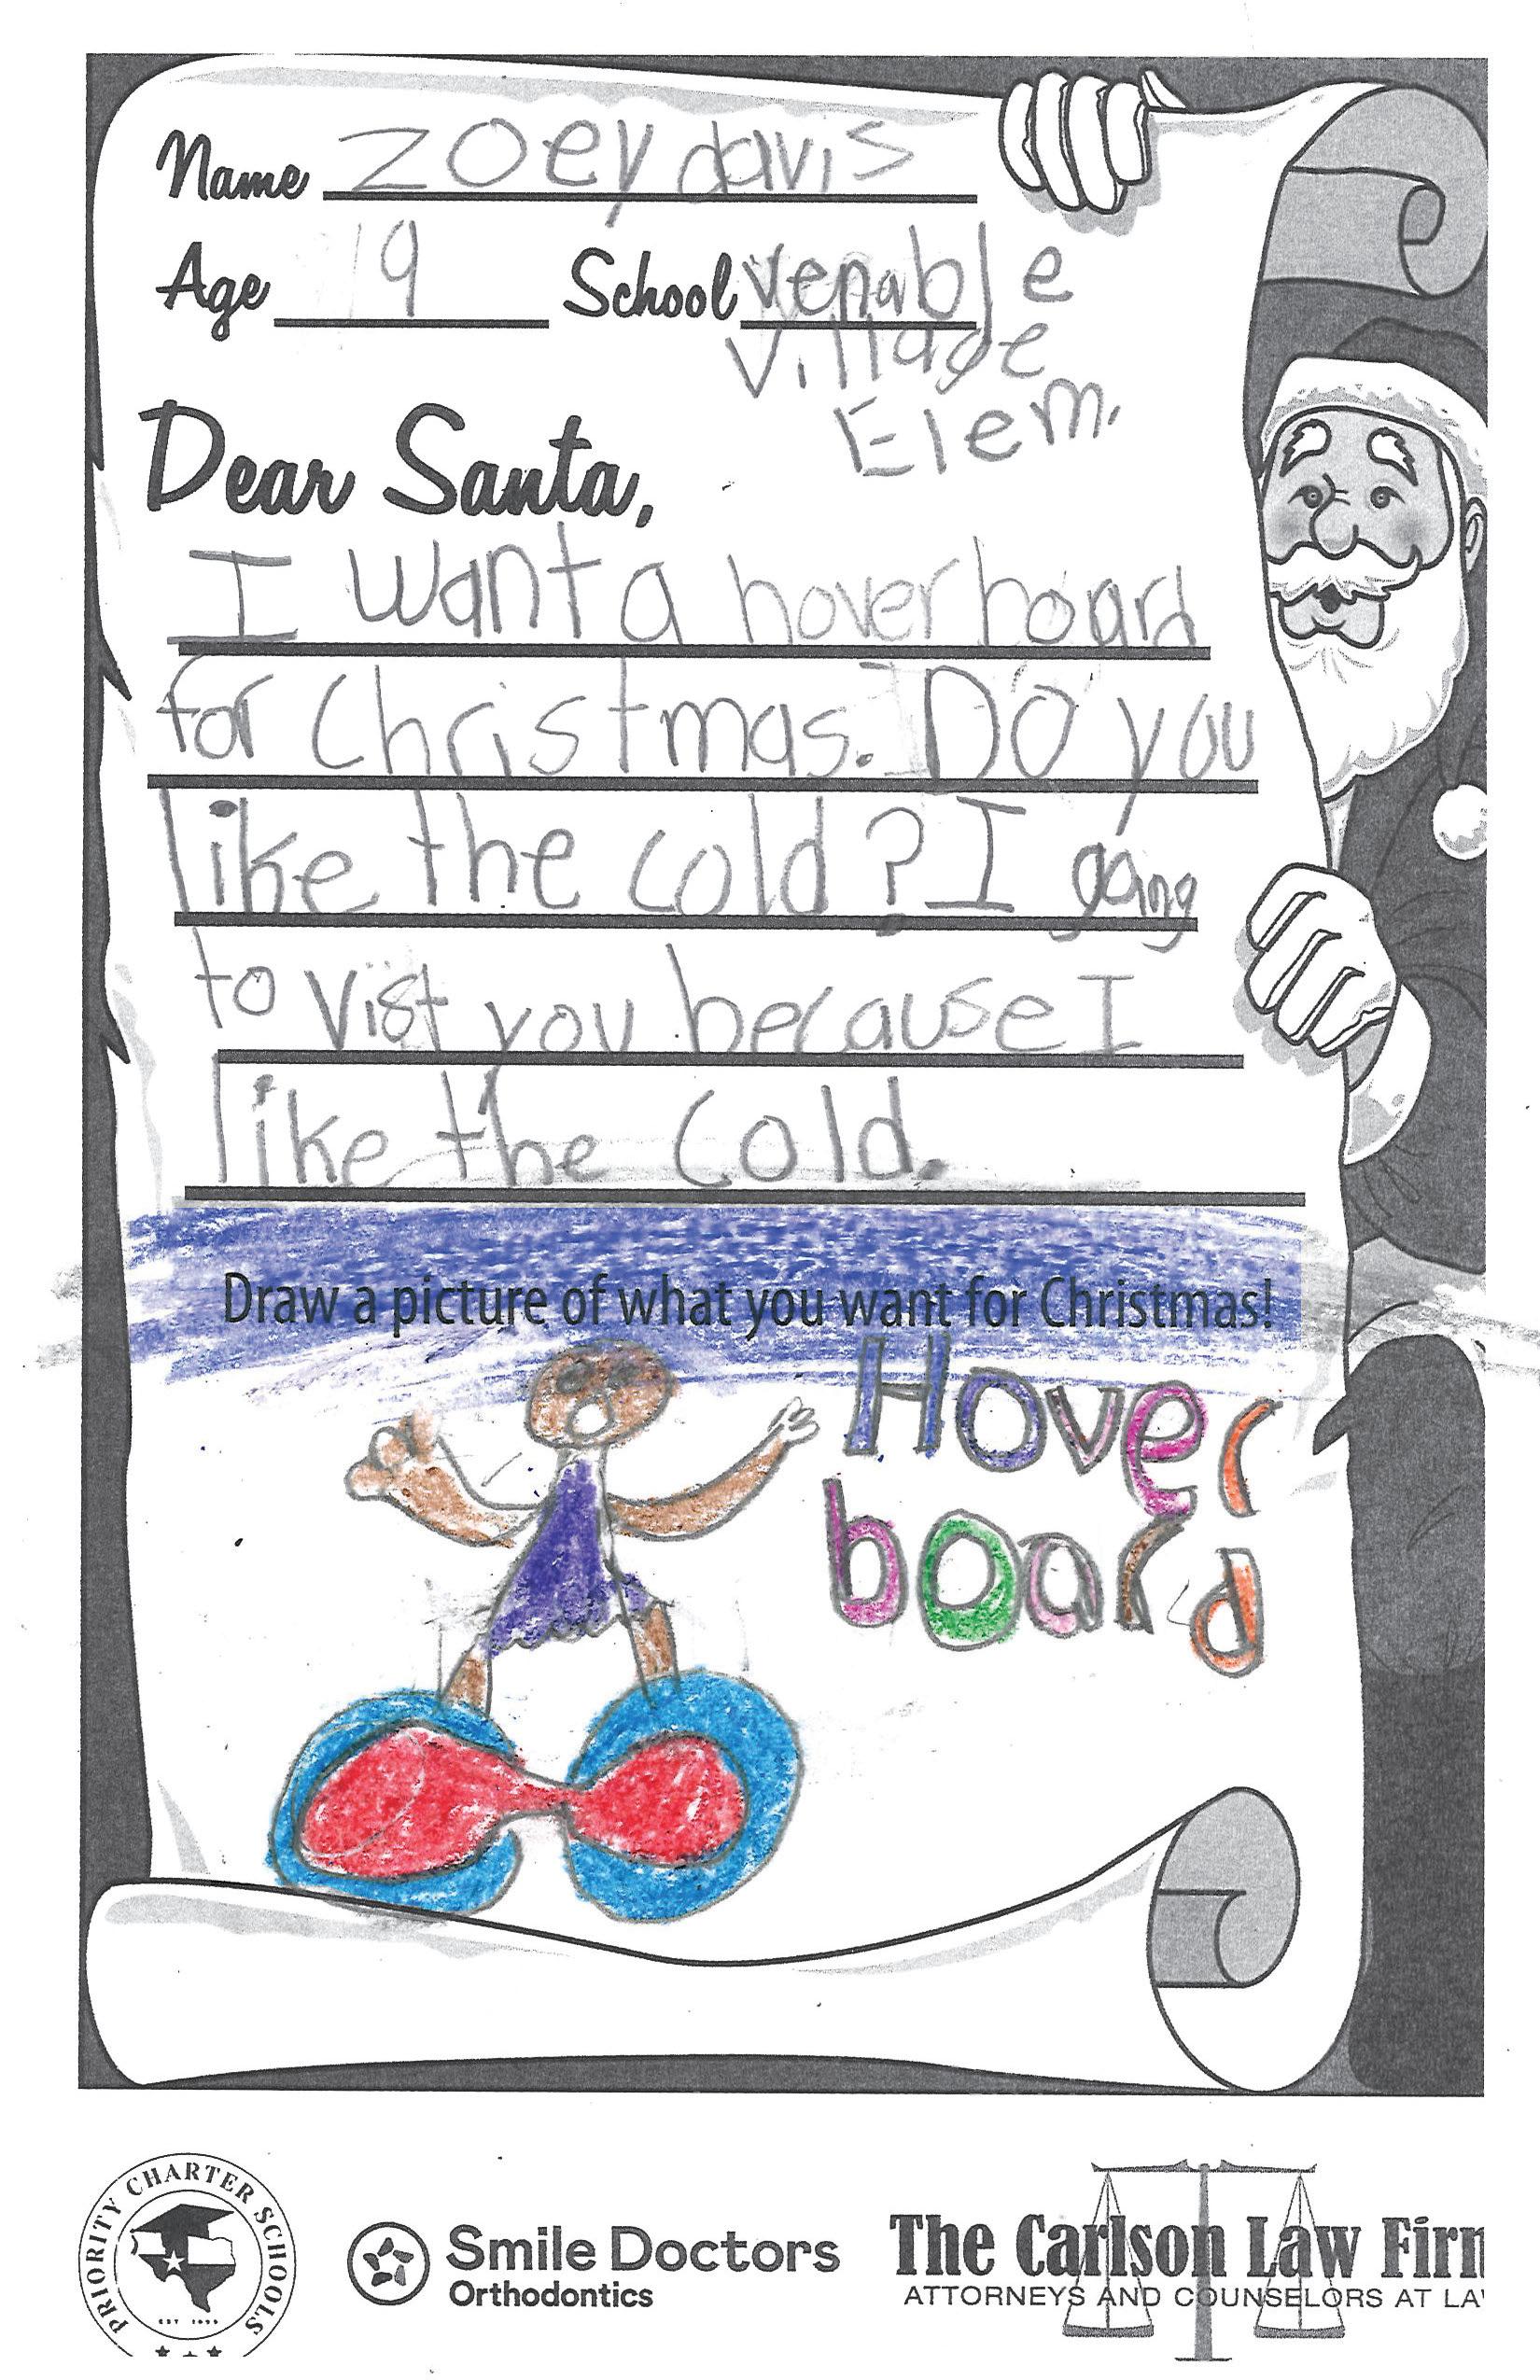 Name zoey davis
Age 9 School venable
village
Elem.
Dear Santa,
I want a hover board
for Christmas. Do you
like the cold? I going
to vist you because I
like the cold.
Draw a picture of what you want for Christmas!
Hover
board
PRIORITY CHARTER SCHOOLS
Smile Doctors
Orthodontics
The Carlson Law Firm
ATTORNEYS AND COUNSELORS AT LA